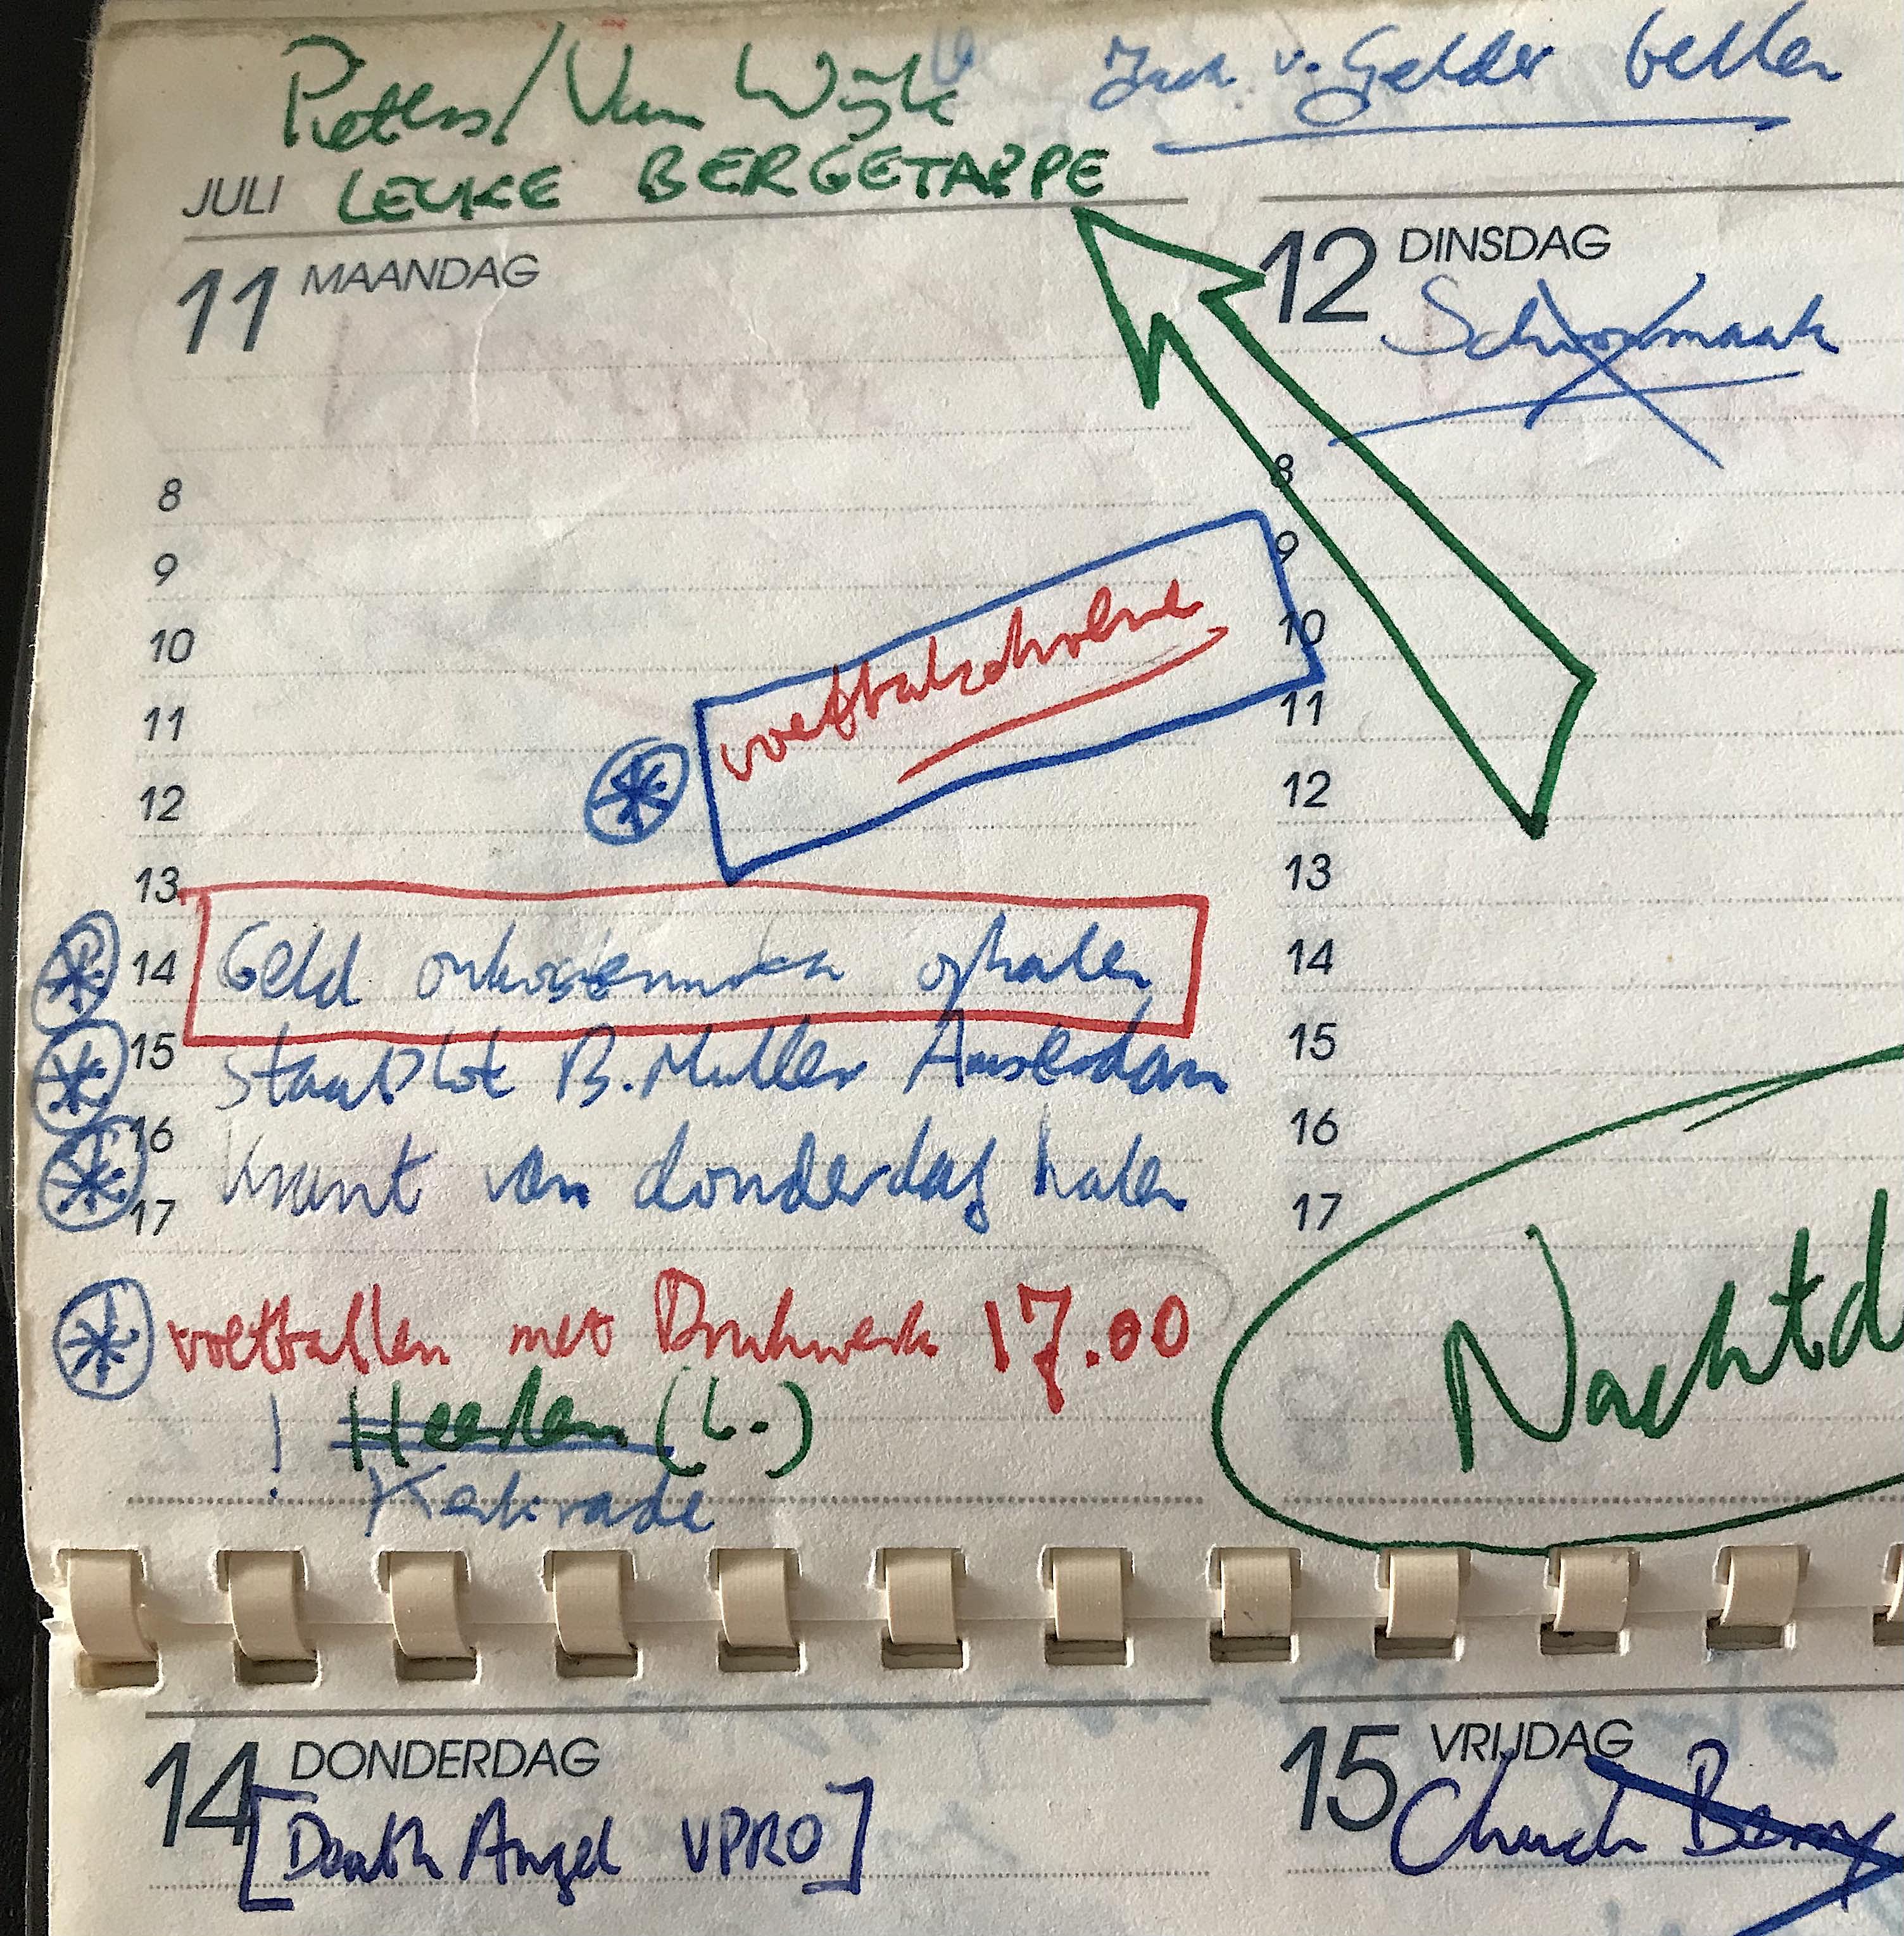 Pieters/Van Wijk
Jack v. Gelder bellen
JULI LEUKE BERGETAPPE
11 MAANDAG
8
9
10
11
12
13
14
15
16
17
voetbalschoenen
Geld onkosten ophalen
Staatslot B. Muller Amsterdam
Krant van donderdag halen
voetballen met Drukwerk 17.00
! Heerlen (L.)
Kerkrade
12 DINSDAG
Schoonmaak
8
9
10
11
12
13
14
15
16
17
Nachtd
14 DONDERDAG
[Death Angel VPRO]
15 VRIJDAG
Chuck Berry